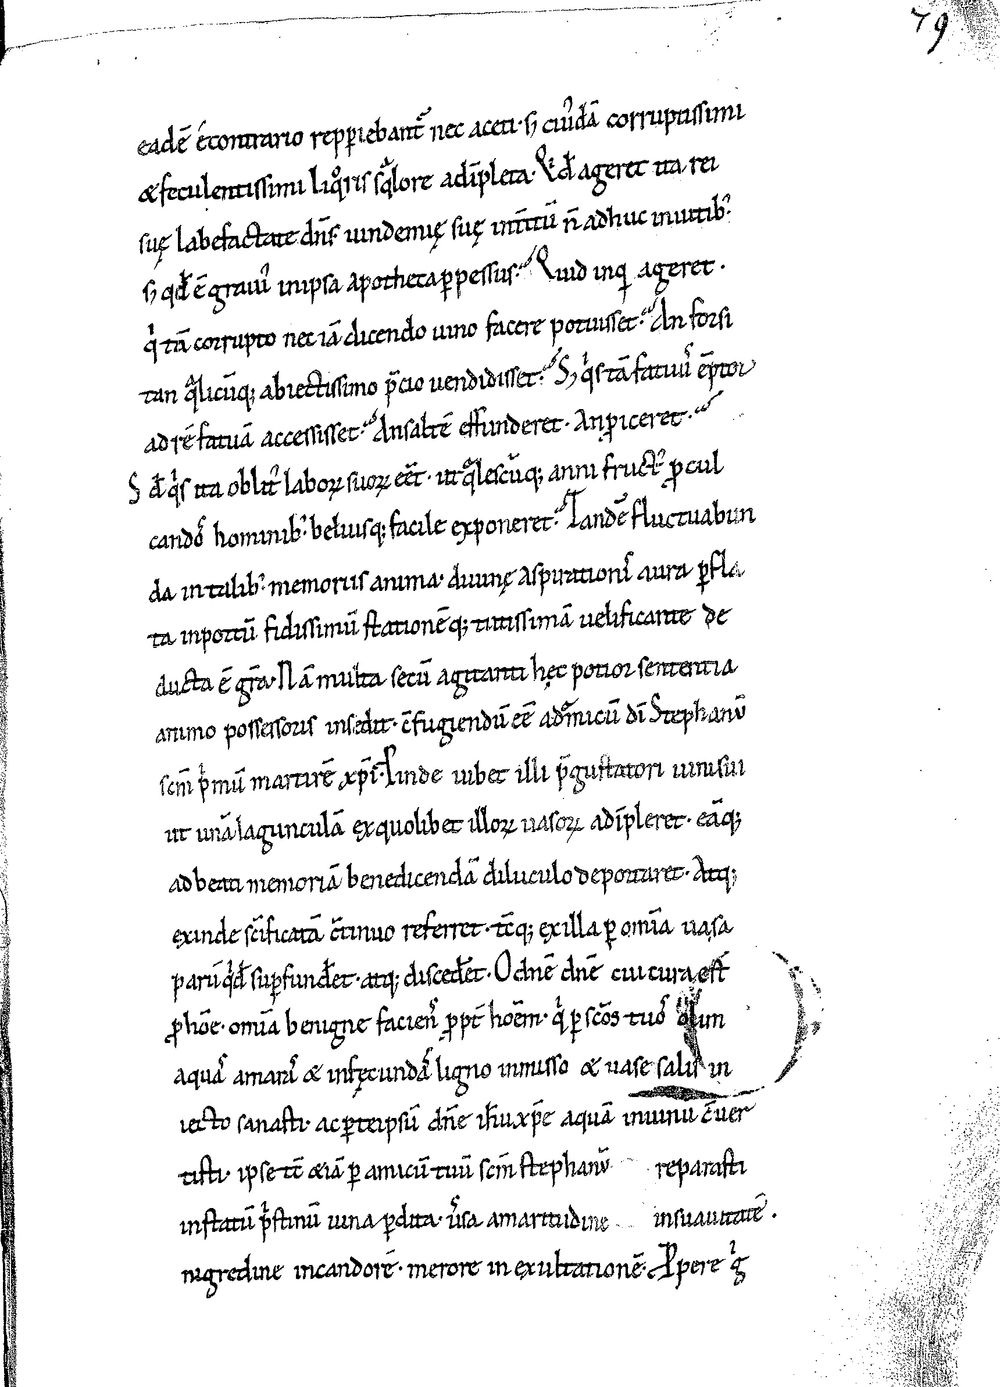 79
eadē écontrario repp̱iebant᷑ nec aceti· ꝫ cuiꝰdā corruptissimi
& feculentissimi liqͦris sqͣlore adīpleta· Qͥd ageret ita rei
suę labefactate dn̄s uindemię suę intͥtū n̄ adhuc inuitibꝰ·
ꝫ qd̄ ē grauiꝰ inipsa apotheca ꝑpessus· Quid inqͣ ageret·
qͥ tā corrupto nec iā dicendo uino facere potuisset· An forsi
tan qͣlicūq; abiectissimo p̄cio uendidisset· Sꝫ qͥs tā fatuuꝰ ēptor
ad rē fatuā accessisset· An saltē effunderet· An ꝓiceret·
Sꝫ qͥs ita oblitꝰ laboꝝ suoꝝ eēt· ut qͣlescūq; anni fructꝰ ꝓcul
candoˢ hominibꝰ· beluisq; facile exponeret· Tandē fluctuabun
da in talibꝰ memoriis anima· diuinę aspirationiˢ aura ꝑfla
ta inportū fidissimū stationēq; tutissimā uelificante de
ducta ē gr̄a· Nā multa secū agitanti hęc potior sententia
animo possessoris insedit· c̄fugiendū eē ad amicū dī Stephanū
scm̄ pͥmū martirē xp̄i· Inde iubet illi p̄gustatori uini sui
ut unā lagunculā exquolibet illoꝝ uasoꝝ adīpleret· eāq;
ad beati memoriā benedicendā diluculo deportaret· Atq;
exinde scīficatā c̄tinuo referret· tc̄q; exilla ꝑ omīa uasa
parū qͥd suꝑfundet᷑· atq; discedet᷑· O dn̄e dn̄e cui cura est
ꝓ hoīe· omīa benigne facienˢ ꝓpt᷑ hoēm· qͥ ꝑ scōs tuoˢ olim
aquaˢ amaraˢ & infęcundaˢ ligno inmisso & uase salis in
iecto sanasti· ac ꝑ teipsū dn̄e ih̄u xp̄e aquā inuinū c̄uer
tisti· ipse tc̄ & iā ꝑ amicū tuū scm̄ stephanū reparasti
instatū pͥstinū uina ꝑdita· ūsa amaritudine insuauitatē·
nigredine incandorē· merore in exultationē· Aꝑere gͥ